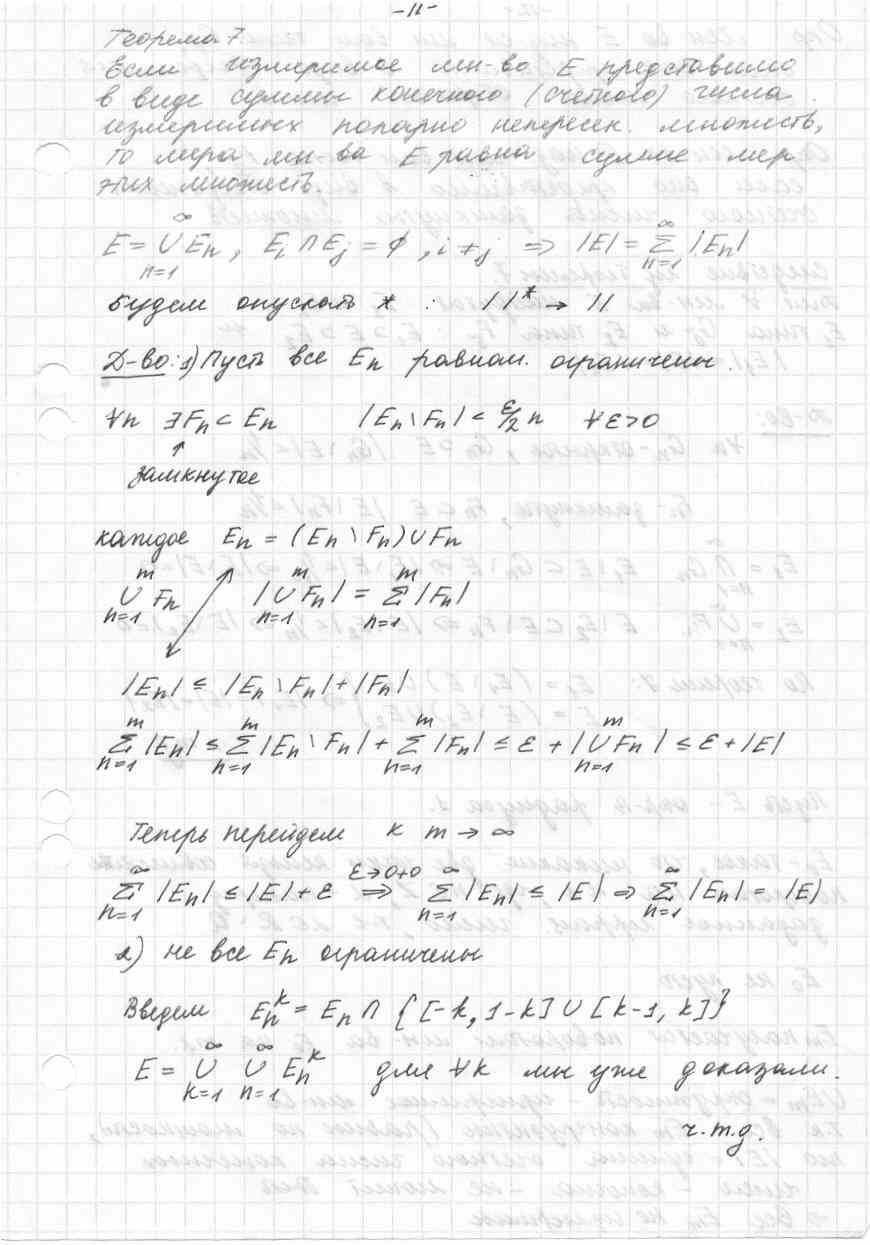 -11-
Теорема 7
Если измеримое мн-во E представимо
в виде суммы конечного (счетного) числа
измеримых попарно непересек. множеств,
то мера мн-ва E равна сумме мер
этих множеств.
E = ∪_{n=1}^{∞} E_n , E_i ∩ E_j = ∅ , i ≠ j ⇒ |E| = Σ_{n=1}^{∞} |E_n|
Будем опускать * : ||* → ||
Д-во: 1) Пусть все E_n равном. ограничены.
∀n ∃F_n ⊂ E_n |E_n \ F_n| < ε/2^n ∀ε>0
замкнутое
каждое E_n = (E_n \ F_n) ∪ F_n
∪_{n=1}^{m} F_n |∪_{n=1}^{m} F_n| = Σ_{n=1}^{m} |F_n|
|E_n| ≤ |E_n \ F_n| + |F_n|
Σ_{n=1}^{m} |E_n| ≤ Σ_{n=1}^{m} |E_n \ F_n| + Σ_{n=1}^{m} |F_n| ≤ ε + |∪_{n=1}^{m} F_n| ≤ ε + |E|
Теперь перейдем к m → ∞
Σ_{n=1}^{∞} |E_n| ≤ |E| + ε ⇒^{ε→0+0} Σ_{n=1}^{∞} |E_n| ≤ |E| ⇒ Σ_{n=1}^{∞} |E_n| = |E|
2) не все E_n ограничены
Введем E_n^k = E_n ∩ {[-k, 1-k] ∪ [k-1, k]}
E = ∪_{k=1}^{∞} ∪_{n=1}^{∞} E_n^k для ∀k мы уже доказали.
ч.т.д.